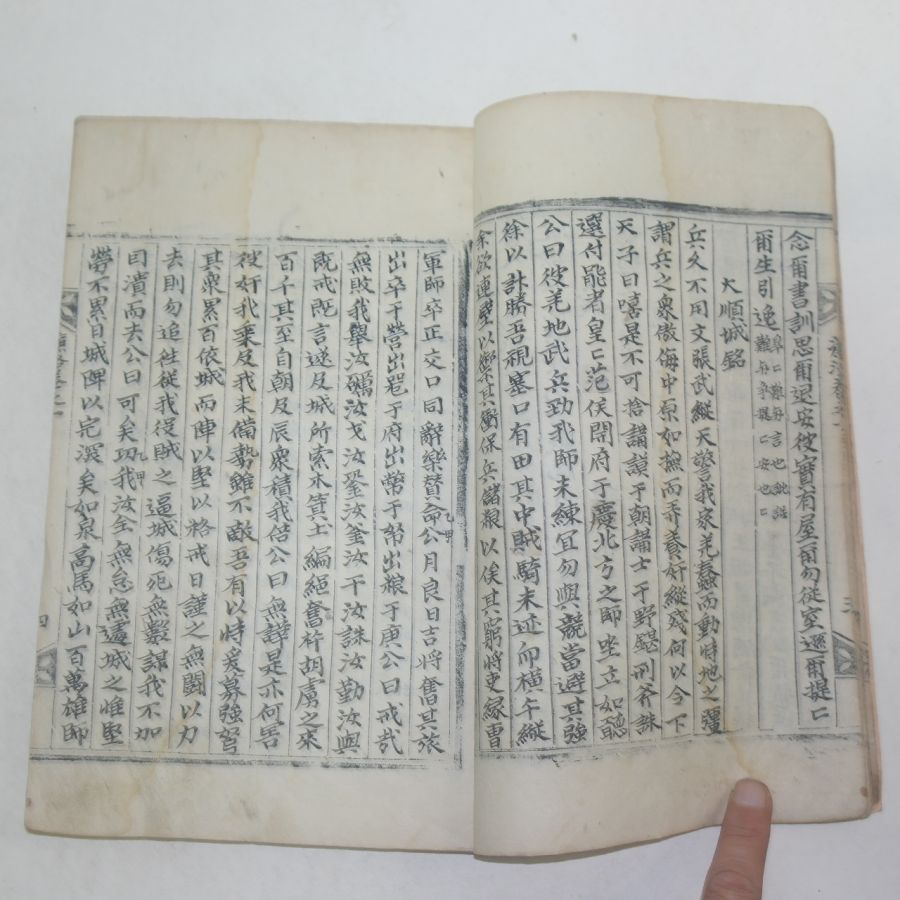 念爾書訓思爾退安彼實有屋爾勿從室邇爾提匚
爾生引逸
大順城銘
兵久不用文張武縱天警我家羌蠢而動恃地之彊
謂兵之衆傲侮中原如撫而弄養奸縱殘何以令下
天子曰嘻是不可捨諸謨于朝講士于野鍖刑斧誅
選付能者皇匚范侯開府于慶北方之師坐立如聽
公曰彼羌地武兵勁我師未練宜勿與競當避其強
徐以計勝吾視塞口有田其中賊騎未迹卯横午縱
余欲連壁以禦其衝保兵儲粮以俟其窮將吏緣曹
軍師卒正交口同辭樂贊命公月良日吉將奮其旅
出卒于營出器于府出幣于帑出粮于庚公曰戒哉
無敗我舉汝礪汝戈汝鋈汝釜汝干汝誅汝勤汝與
既戒既言遂及城所索木箕土編絙奮杵胡虜之來
百千其至自朝及辰衆積我倍公曰無譁是亦何害
彼奸我乗及我未備勢雖不敵吾有以恃爰募強弩
其衆累百依城而陣以堅以格戒曰謹之無鬪以力
去則勿追往從我役賊之逼城傷死無數謀我不加
因潰而去公曰可矣功我汝全無怠無遽城之惟堅
勞不累日城陴以完深矣如泉高焉如山百萬雄師
三
四